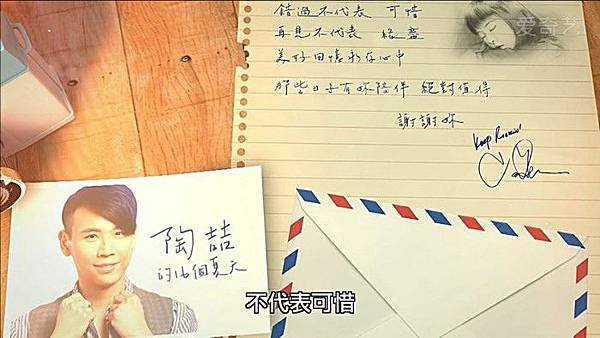 爱奇艺
錯過不代表 可惜
再見不代表 緣盡
美好回憶永存心中
那些日子有妳陪伴 絕對值得
謝謝妳
Keep Rockin'
陶喆
的16個夏天
不代表可惜